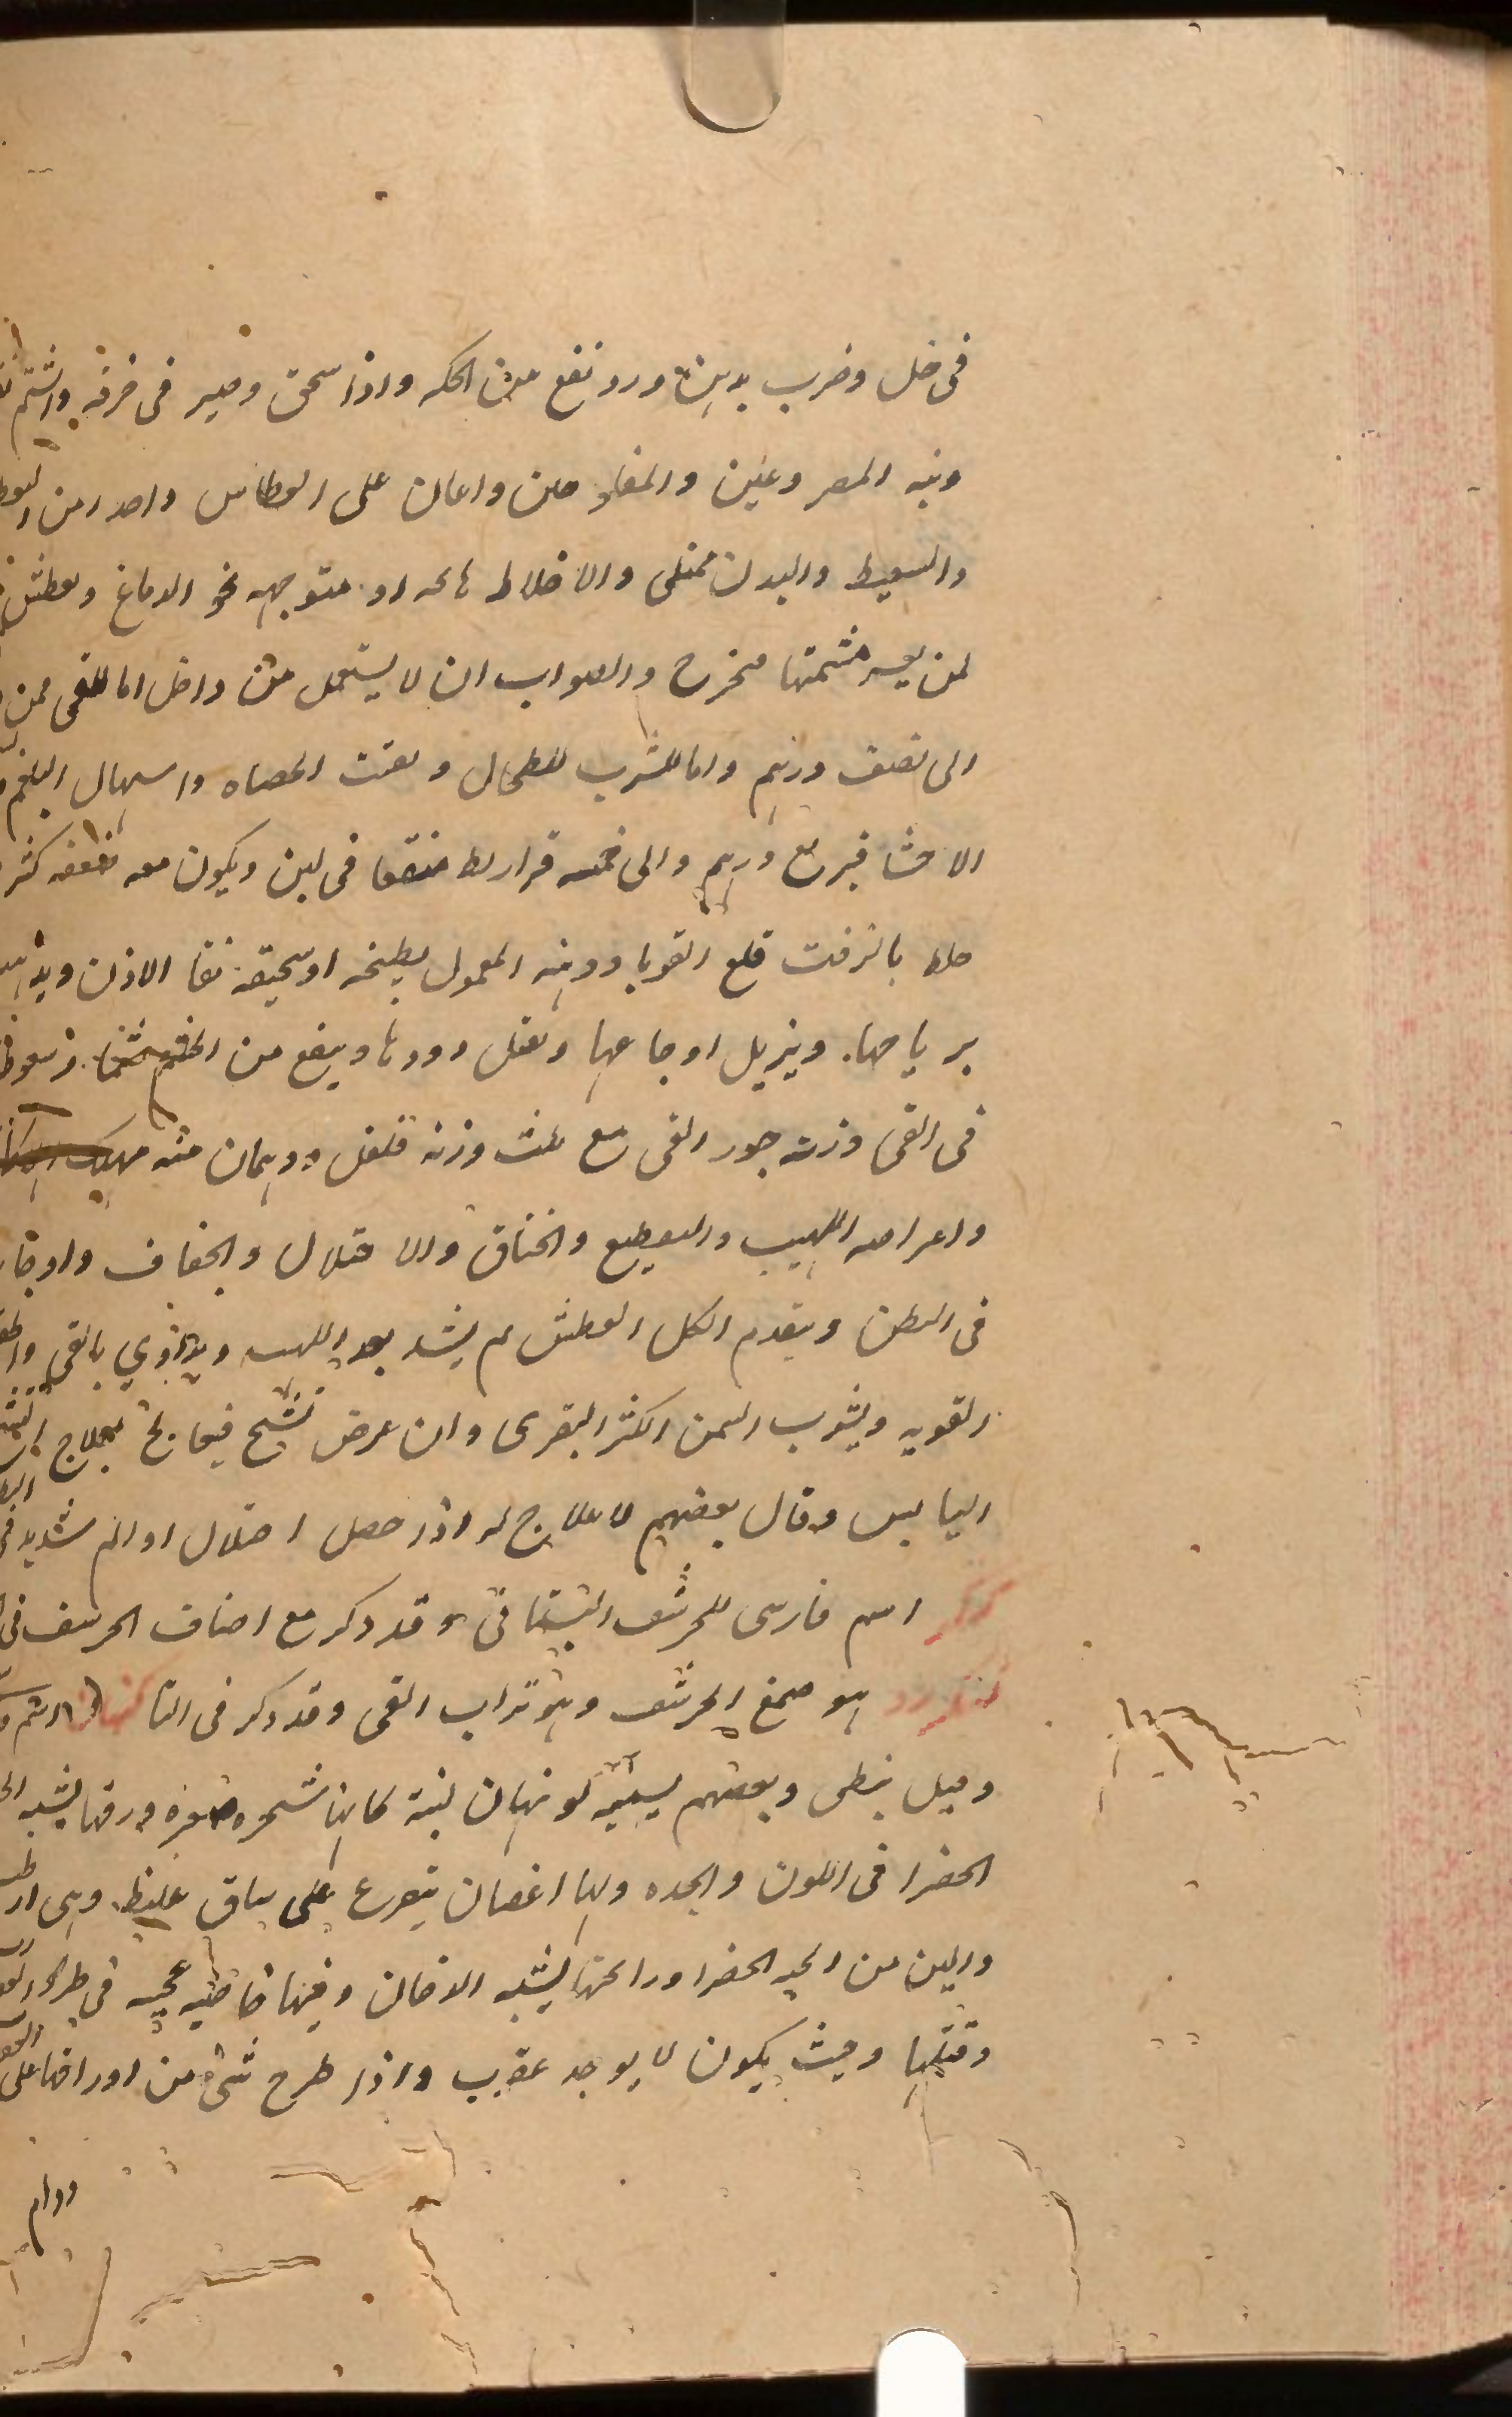 فى خل وضرب بدهن ورد نفع من الحكه واذا سحق وصير فى خرقه واشتم
ونبه المصروعين والمفلوجين واعان على العطاس واحدر من
والسعيط والبدن ممتلى والاخلاط هائجه او متوجهه نحو الدماغ وبعطش
لمن يعسر مشمتها مخرج والصواب ان لا يستعمل من داخل اما للقى فمن
الى نصف درهم واما للشرب للطحال وتفتت الحصاه واسهال البلغم
الاحشا فبربع درهم والى خمسه قراريط منقعا فى لبن ويكون معه ضعفه كثر
طلا بالزفت قلع القوبا ودهنه المعمول بطبخه او سحيقه نقا الاذن ويذهب
برياحها ويزيل اوجاعها وتقتل دودها وينفع من الخشم شما وسعوطا
فى القى وزنه جوز القى مع ثلث وزنه فلفل ودرهمان منه مهلك
واعراضه اللهيب والتقطيع والخناق والاختلال والجفاف واوجا
فى البطن ويتقدم الكل العطش ثم يشتد بعد اللهيب ويداوي بالقى
القويه ويشرب السمن الكثر البقرى وان عرض تشنج فيعالج بعلاج
اليابس وقال بعضهم لا علاج له اذا حصل اختلال او الم شديد فى
كنكر اسم فارسى للحرشف البستانى وقد ذكر مع اصناف الحرشف فى
كنكرزد هو صمغ الحرشف وهو تراب القى وقد ذكر فى التا
وقيل نبطى وبعضهم يسميه كونهان نبته كانها شجره صغره ورقها يشبه
الخضرا فى اللون والجده ولها اغصان يتفرع على ساق غليظ وهى
والين من الحبه الخضرا ورائحتها يشبه الافحان وفيها خاصيه عجيبه فى طرد
وقتلها وحيث يكون لا يوجد عقرب واذا طرح شئ من اوراقها على
ودام